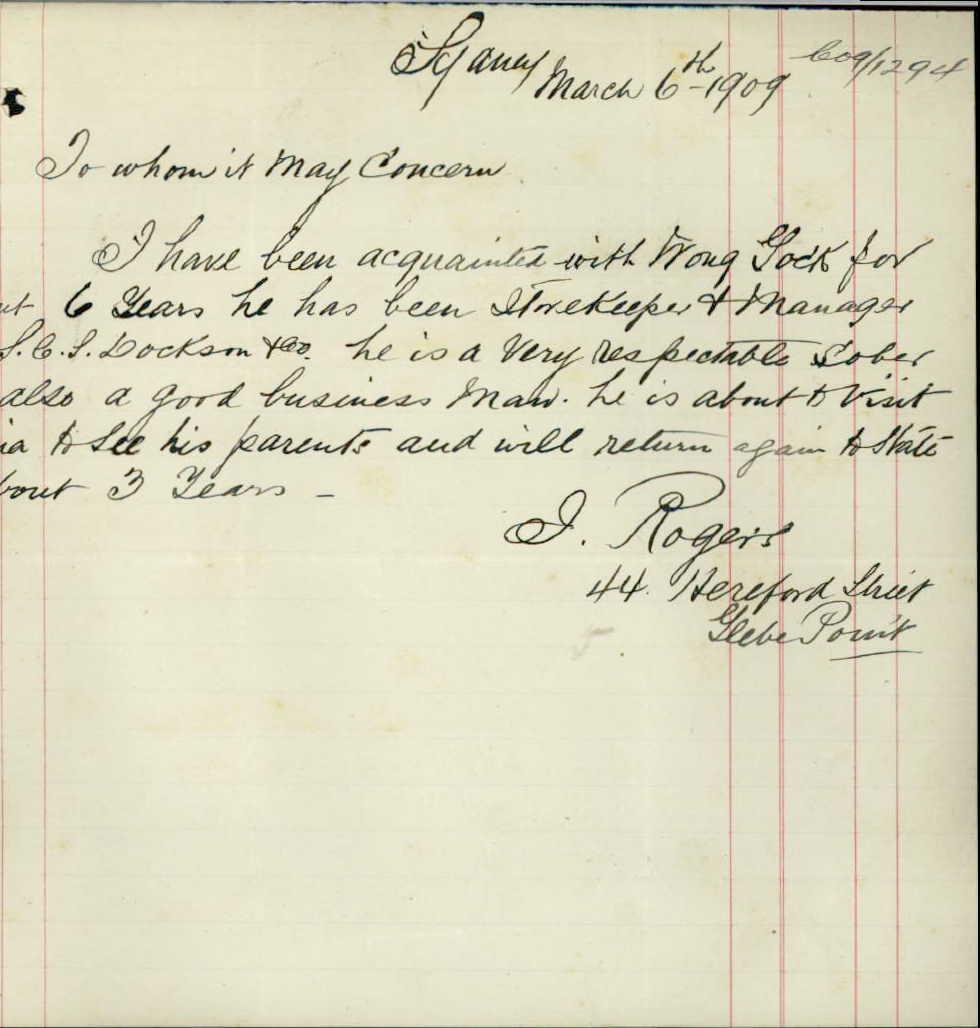 Sydney
March 6th-1909
C09/1294
To whom it May Concern
I have been acquainted with Wong Gock for
ut 6 Years he has been Storekeeper & Manager
S.C.S. Dockson & Co. he is a Very respectable Sober
also a good business Man. he is about to Visit
na to See his parents and will return again to State
bout 3 Years -
J. Rogers
44. Hereford Street
Glebe Point